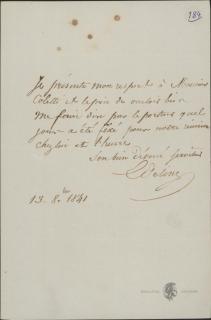 184
Je présente mon respect à Monsieur
Coletti et le prie de vouloir bien
me faire dire par le porteur quel
jour a été fixé pour notre réunion
chez lui et l'heure
Son bien dévoué serviteur
13. 8.bre 1841